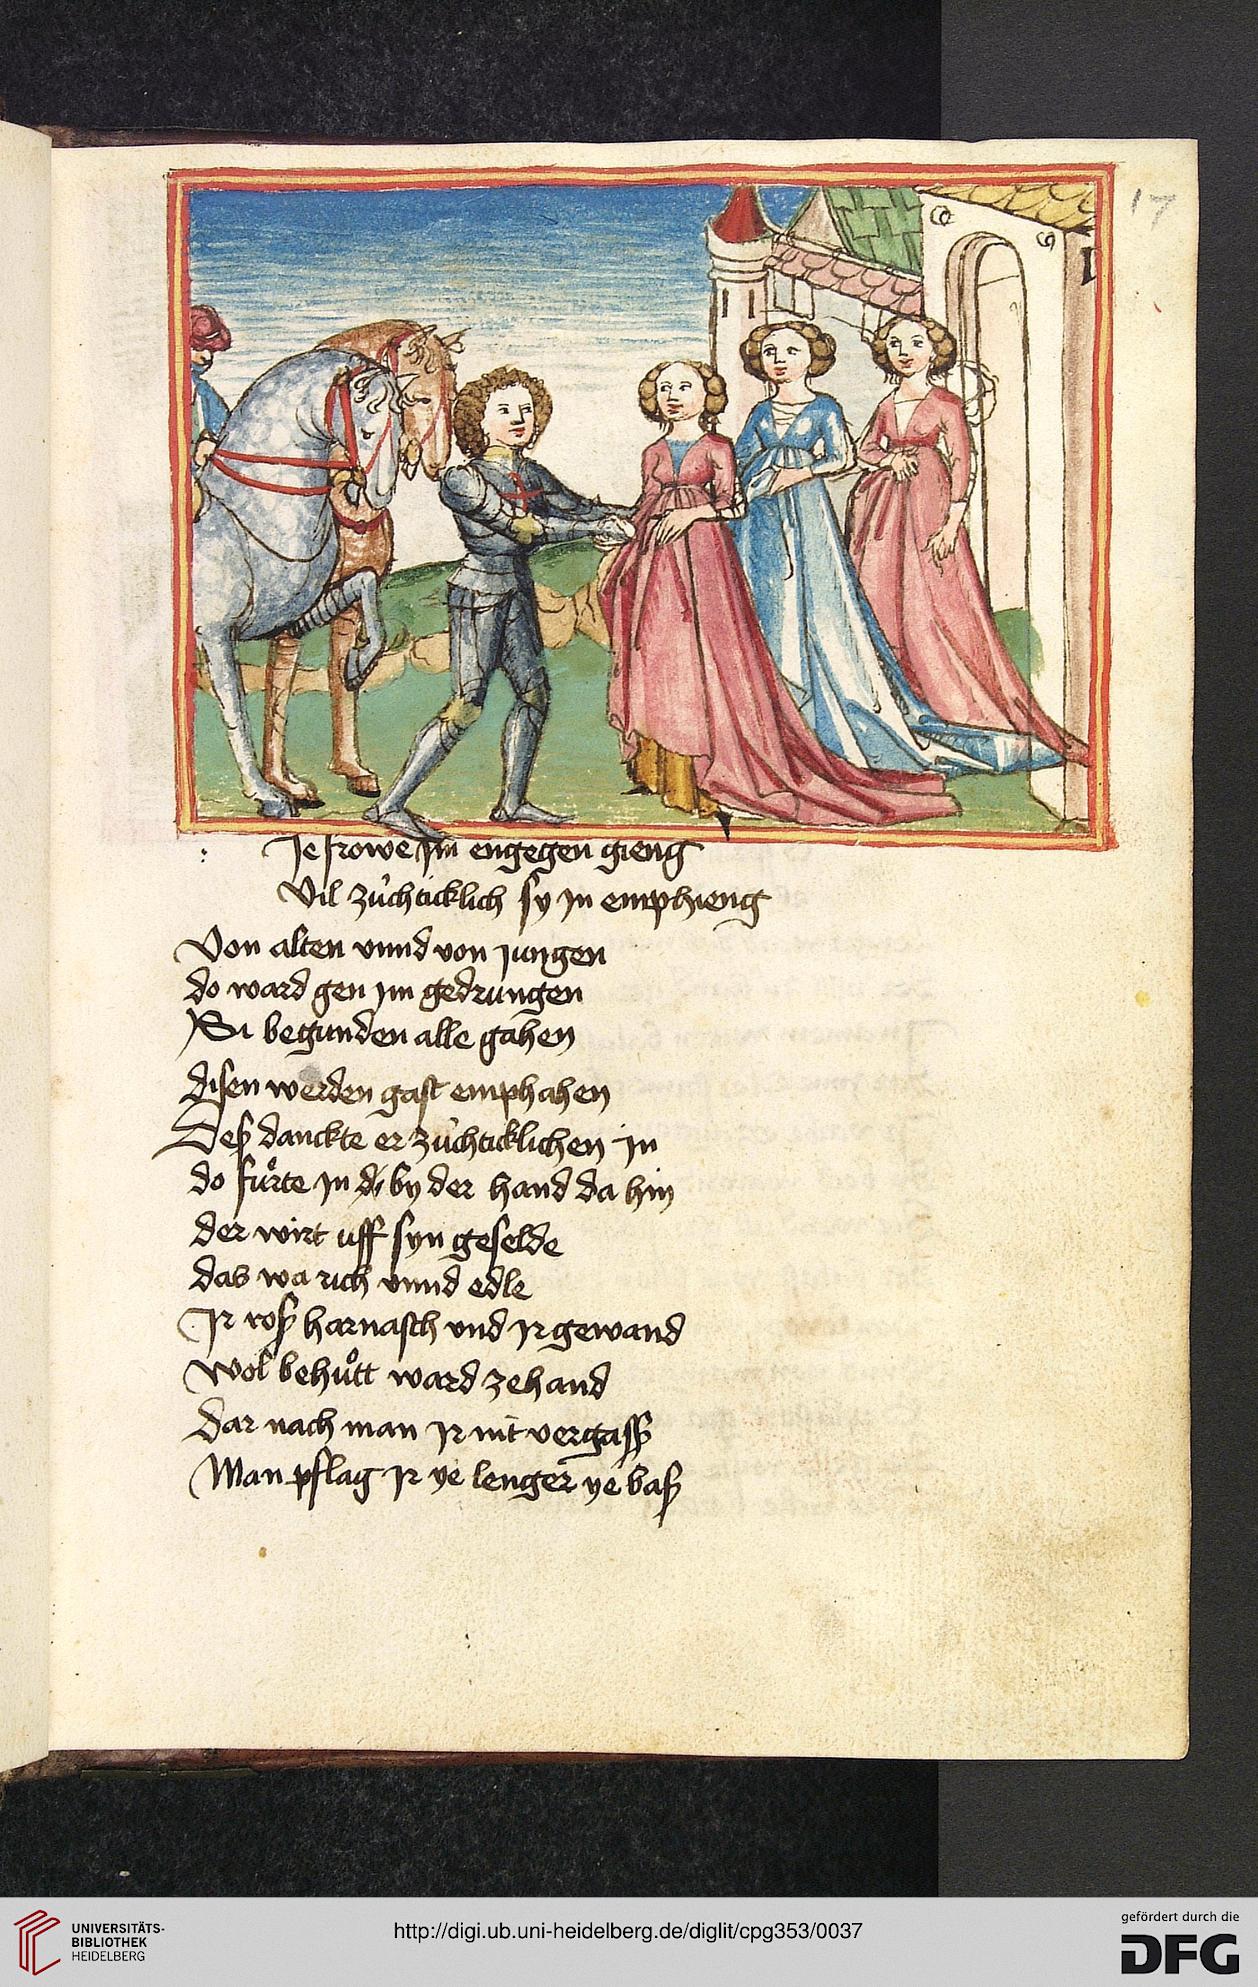 17
Je frowe jm engegen gieng
Vil zuͤchticklich sy jn emphieng
Von alten vnnd von jungen
do ward gen jm gedrungen
Si begunden alle gahen
disen werden gast emphahen
Deß danckte er zuͤchticklichen jn
do fuͤrte jn di by der hand da hin
der wirt uff syn geselde
das wa rich vnnd edle
Jr roß harnasch vnd jr gewand
wol behuͦtt ward zehand
Dar nach man jr nit vergaß
Man pflag jr ye lenger ye baß
UNIVERSITÄTS-
BIBLIOTHEK
HEIDELBERG
http://digi.ub.uni-heidelberg.de/diglit/cpg353/0037
gefördert durch die
DFG